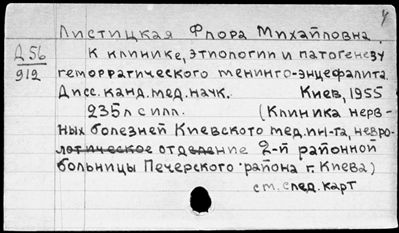 Листицкая Флора Михайловна
Д 56
912
К клинике, этиологии и патогенезу
геморрагического менинго-энцефалита.
Дисс. канд. мед. наук. Киев, 1955
235л с илл. (Клиника нерв-
ных болезней Киевского мед. ин-та, невро-
логическое отделение 2-й районной
больницы Печерского района г. Киева)
см. след. карт